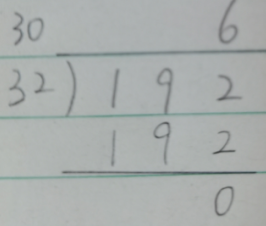 30 6
32)192
192
0